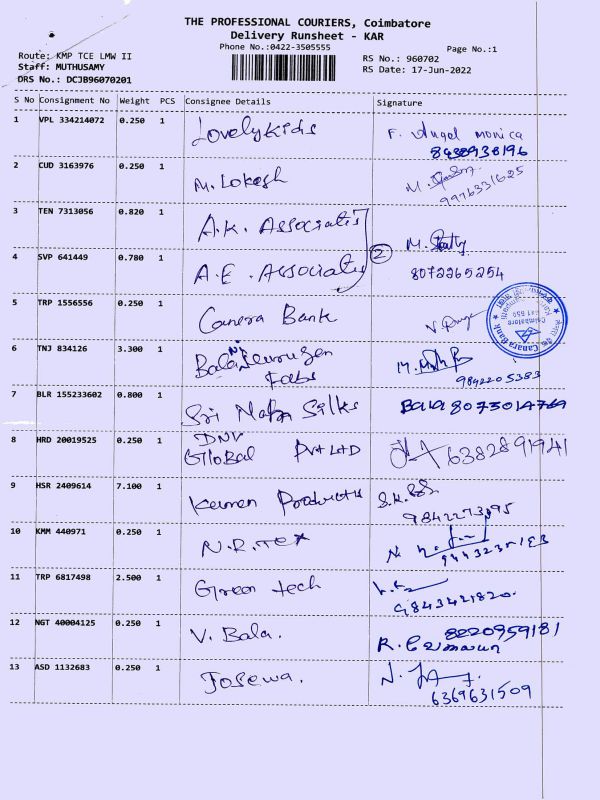 THE PROFESSIONAL COURIERS, Coimbatore
Delivery Runsheet - KAR
Phone No.:0422-3505555
Page No.:1
Route: KMP TCE LMW II
RS No.: 960702
Staff: MUTHUSAMY
RS Date: 17-Jun-2022
DRS No.: DCJB96070201
S No Consignment No Weight PCS Consignee Details Signature
1 VPL 334214072 0.250 1 Lovelykids F. Angel Monica
8438938196
2 CUD 3163976 0.250 1 M. Lokesh M.
9976331625
3 TEN 7313056 0.820 1 A.K. Associates
4 SVP 641449 0.780 1 A.E. Associates 2 M.
8072265254
5 TRP 1556556 0.250 1 Canera Bank
Canara Bank
Coimbatore
6 TNJ 834126 3.300 1 Bala
Fabs
9842205383
7 BLR 155233602 0.800 1 Sri Silks Bala 8073014769
8 HRD 20019525 0.250 1 DNV
GlloBal Pvt LtD 6382891941
9 HSR 2409614 7.100 1 Products S.K.
10 KMM 440971 0.250 1 N.R.Tex N.
11 TRP 6817498 2.500 1 Green tech
9843421820.
12 NGT 40004125 0.250 1 V. Bala. 8220959181
R.
13 ASD 1132683 0.250 1 Josewa. N.
6369631509